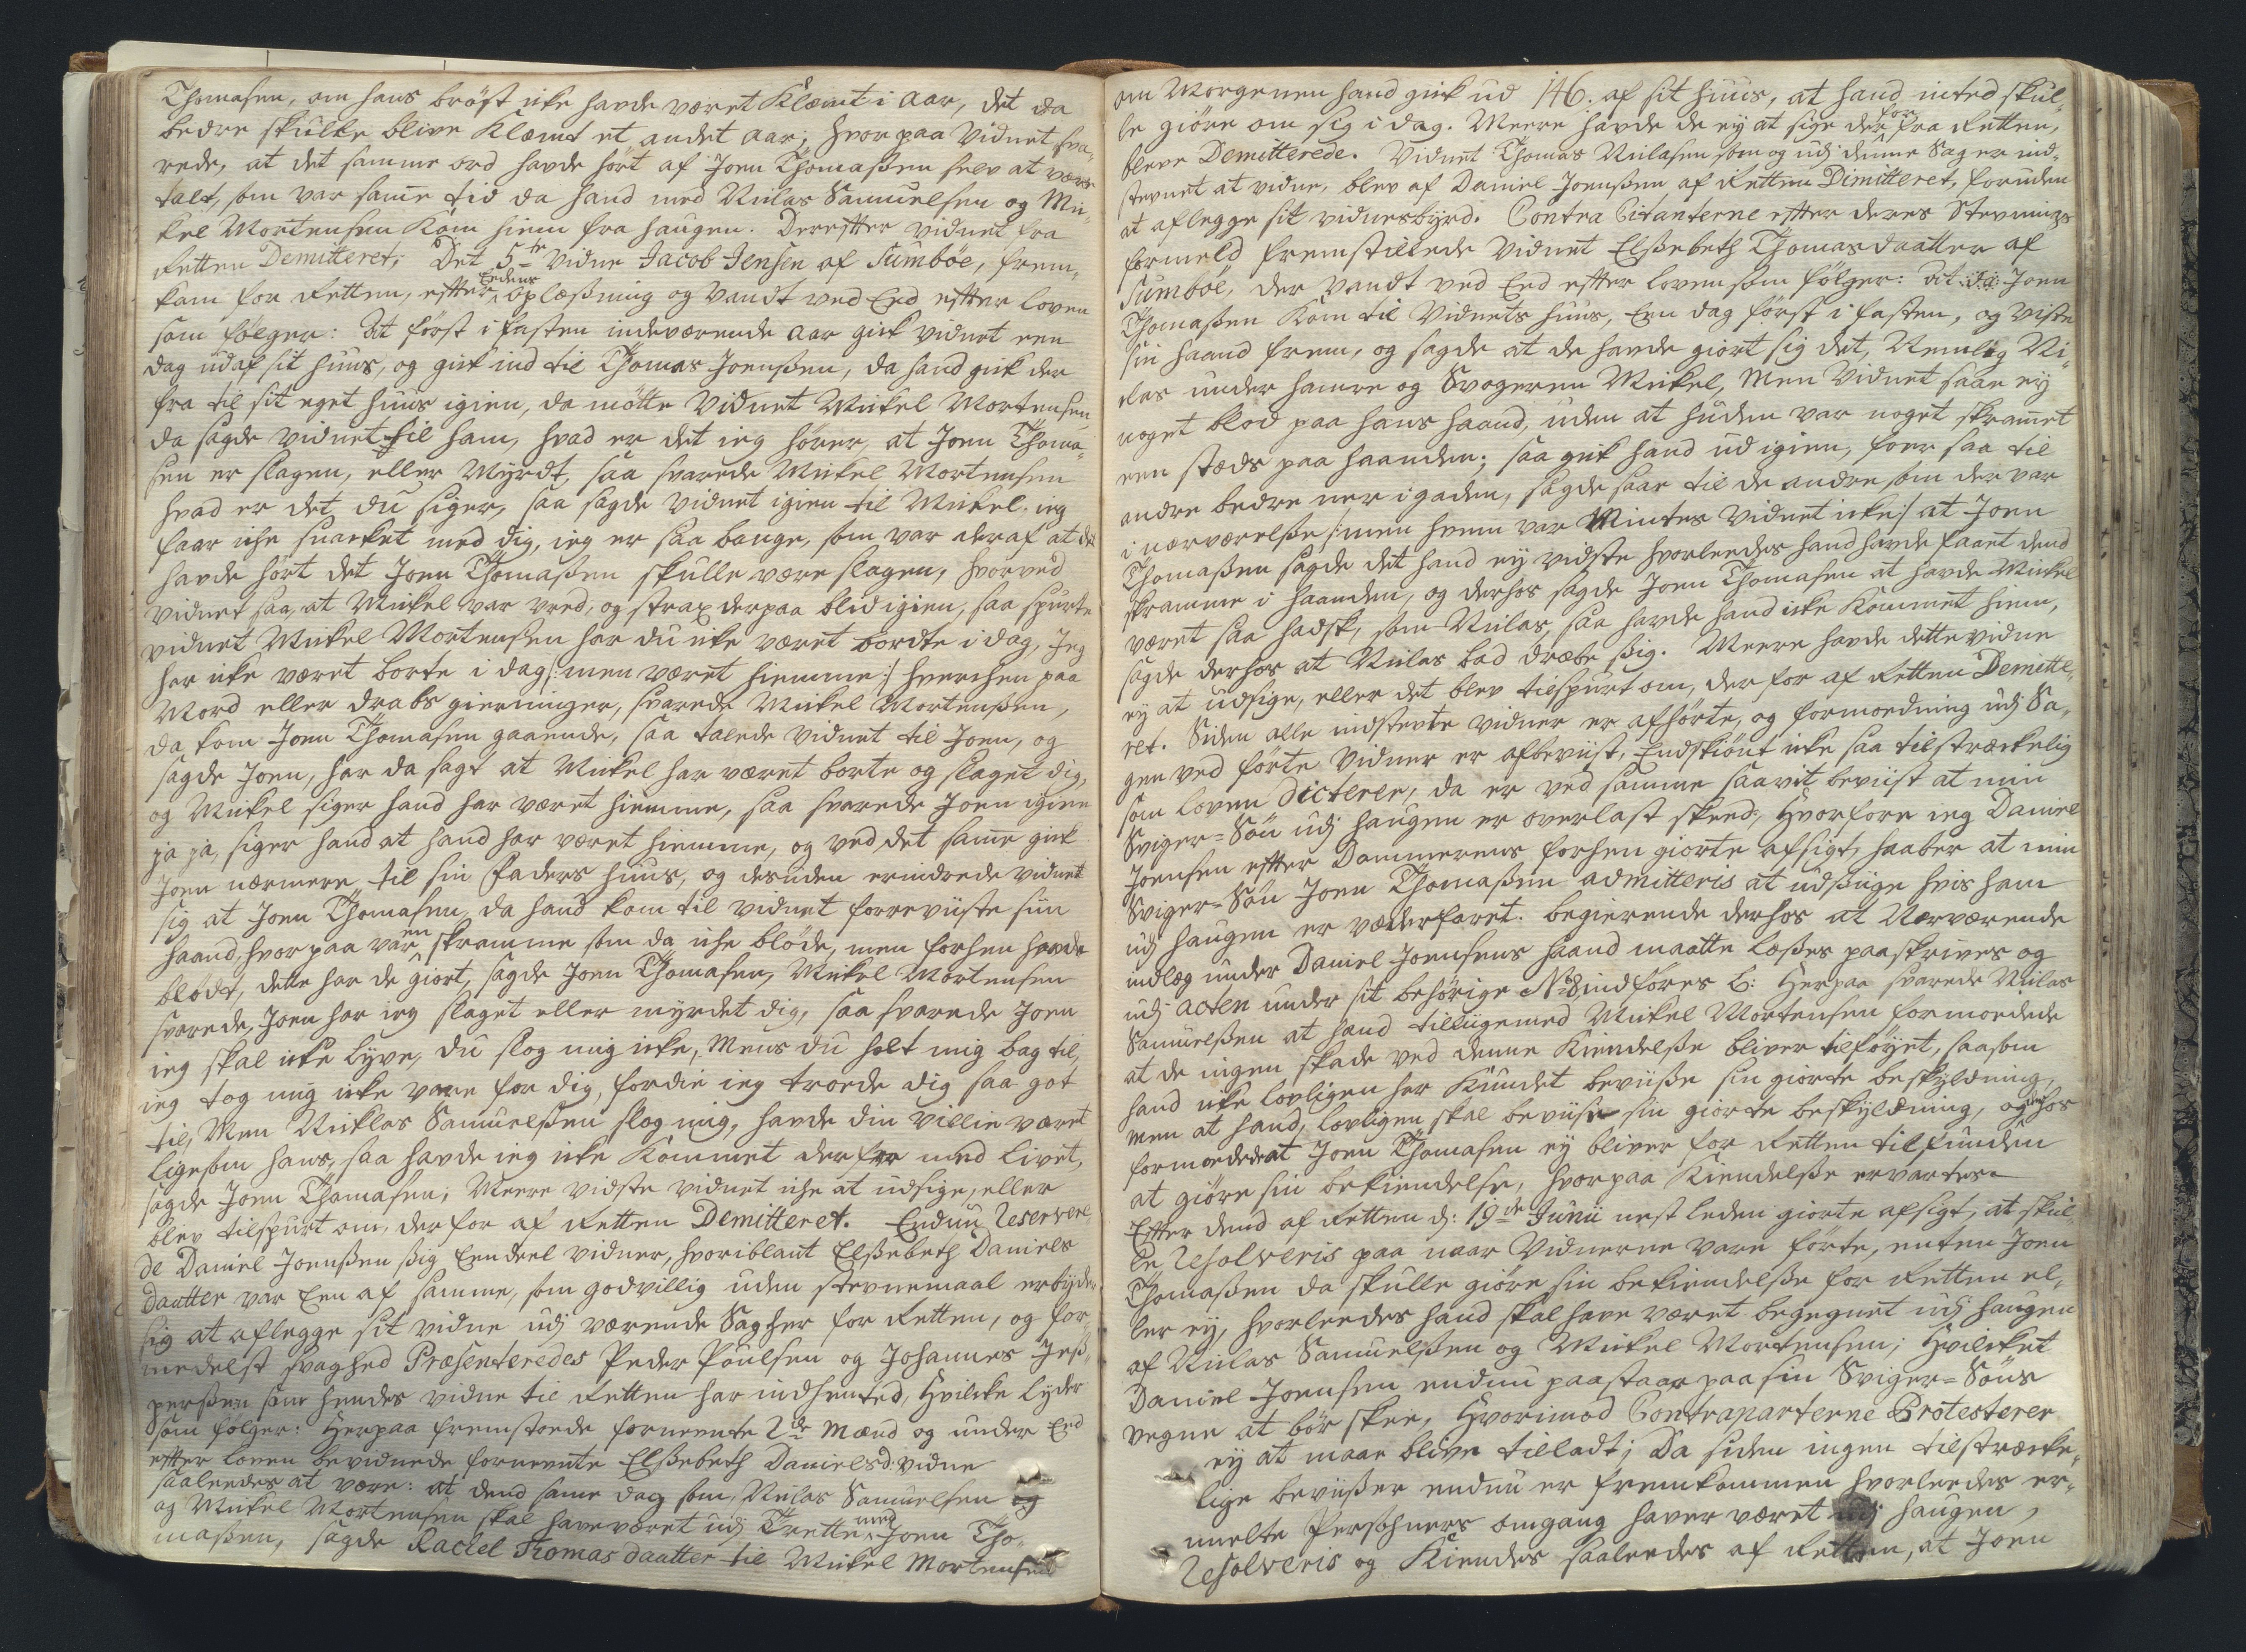 Thomasen, om hans brøst icke hafde været Klæmt i aar, det da
bedre skulle blive Klæmt et andet aar; hvorpaa vidnet sva-
rede, at det samme ord hafde hørt af Joen Thomassen selv at være
talt, som var samme tid da hand med Niclas Samuelsen og Mi-
kel Mortensen Kom hiem fra haugen. Derefter vidnet fra
Retten Demitteret; Det 5te vidne Jacob Jensen af Sumbøe, frem-
kom for Retten, efter Eedens oplæsning og vandt ved Eed efter loven
som følger: At først i fasten indeværende aar gick vidnet een
dag ud af sit huus, og gick ind til Thomas Joensen, da hand gick der
fra til sit eget huus igien, da møtte Vidnet Mickel Mortensen
da sagde vidnet til ham, hvad er det ieg hører, at Joen Thoma-
sen er slagen, eller Myrdt, saa svarede Mickel Mortensen
hvad er det du siger, saa sagde vidnet igien til Mickel, ieg
faar iche snacket med dig, ieg er saa bange, som var deraf at det
hafde hørt det Joen Thomassen skulle være slagen, hvorved
vidnet saa, at Mickel var vred, og strax derpaa blid igien, saa spurte
vidnet Mickel Mortensen har du icke været bordte i dag, Jeg
har icke været borte i dag /: men været hiemme :/ hverchen paa
Mord eller drabs gierninger, svarede Mickel Mortensen,
da kom Joen Thomasen gaaende, saa talede vidnet til Joen, og
sagde Joen, har da sagt at Mickel har været borte og slaget dig,
og Mickel siger hand har været hiemme, saa svarede Joen igien
ja ja, siger hand at hand har været hiemme, og ved det samme gick
Joen nærmere til sin Faders huus, og desuden erindrede vidnet
sig at Joen Thomasen, da hand kom til vidnet foreviiste sin
haand, hvorpaa var en skramme som da iche bløde, men forhen hafde
blødt, dette har de giort, sagde Joen Thomasen, Mickel Mortensen
svarede, Joen har ieg slaget eller myrdet dig, saa svarede Joen
ieg skal icke lyve, du slog mig icke, Mens du holt mig bag til,
ieg tog mig icke vare for dig, fordie ieg troede dig saa got
til, Men Nicklas Samuelsen slog mig, hafde din villie været
ligesom hans, saa hafde ieg icke Kommet derfra med livet,
sagde Joen Thomasen; Meere vidste vidnet iche at udsige, eller
blev tilspurt om, derfor af Retten Demitteret. Endnu Reservere-
de Daniel Joensen sig Eendeel vidner, hvoriblant Elsebeth Daniels
daatter var Een af samme, som godvillig uden stevnemaal erbyder
sig at aflegge sit vidne udj værende Sag her for Retten, og for-
medelst svaghed Præsenteredes Peder Poulsen og Johannes Jes-
persen som hendes vidne til Retten har indhented, Hvilcke lyder
som følger: Herpaa fremstoede fornevnte 2de Mænd og under Eed
efter loven bevidnede fornevnte Elsebeth Danielsd: vidne
saaleedes at være: at dend samme dag som Niclas Samuelsen og
og Mickel Mortensen skal have været udj Trette med Joen Tho-
masen, sagde Rachel Thomas daatter til Mickel Mortensen
om Morgenen hand gick ud 146. af sit huus, at hand inted skul-
le giøre om sig i dag. Meere hafde de ey at sige derfor fra Retten,
bleve Demitterede. Vidnet Thomas Niclasen som og udj denne Sag er ind-
stevnet at vidne, blev af Daniel Joensen af Retten Dimitteret, foruden
at aflegge sit vidnesbyrd. Contra Citanterne efter deres Stevnings
formeld fremstillede Vidnet Elsebeth Thomasdaatter af
Sumbøe, der vandt ved Eed efter loven som følger: At da Joen
Thomassen Kom til Vidnets huus, Een dag først i fasten, og viste
sin haand frem, og sagde at de hafde giort sig det, Nemlig Ni-
clas under hamre og Svogeren Mickel, Men Vidnet saae ey
noget blod paa hans haand, uden at huden var noget skrammet
een stæds paa haanden; saa gick hand ud igien, foer saa til
andre bedre ner i gaden, sagde saae til de andre som der var
i nærværelse /: men hvem var Mintes Vidnet icke :/ at Joen
Thomassen sagde det hand ey vidste hvorleedes hand hafde faaet dend
skramme i haanden, og derhos sagde Joen Thomasen at hafde Mickel
været saa hadsk, som Niclas, saa hafde hand icke Kommet hiem,
sagde derhos at Niclas bad dræbe sig. Meere hafde dette vidne
ey at udsige, eller det blev tilspurt om, derfor af Retten Demitte-
ret. Siden alle indstevte vidner er afhørte, og formoedning udj Sa-
gen ved førte Vidner er afbeviist, Endskiønt icke saa tilstræckelig
som loven Dicterer, da er ved samme saavit beviist at min
Sviger-Søn udj haugen er overlast skeed, Hvorfore ieg Daniel
Joensen efter Dommerens forhen giorte afsigt, haaber at min
Sviger-Søn Joen Thomassen admitteris at udsiige hvis ham
udj haugen er væderfaret. begierende derhos at Nærværende
indlæg under Daniel Joensens haand maatte læses paaskrives og
udj Acten under sit behørige No 8 indføres L: Herpaa svarede Niclas
Samuelsen at hand tilligemed Mickel Mortensen formoedede
at de ingen skade ved denne Kiendelse bliver tilføyet, saasom
hand icke lovligen har Kundet beviise sin giorte beskyldning,
men at hand, lovligen skal beviise sin giorte beskyldning, og derhos
formoedede at Joen Thomasen ey bliver for Retten tilfunden
at giøre sin bekiendelse, hvorpaa Kiendelse ervartes.
Efter dend af Retten d: 19de Junii nest leden giorte afsigt, at skul-
le Resolveris paa naar Vidnerne vare førte, enten Joen
Thomassen da skulle giøre sin bekiendelse for Retten el-
ler ey, hvorleedes hand skal have været begegnet udj haugen
af Niclas Samuelsen og Mickel Mortensen; Hvilcket
Daniel Joensen endnu paastaar paa sin Sviger-Søns
vegne at bør skee, Hvorimod Contraparterne Protesterer
ey at maae blive tilladt; Da siden ingen tilstræcke-
lige beviiser endnu er fremkommen hvorleedes er-
melte Persohners omgang haver været udj haugen,
Resolveris og Kiendes saaleedes af Retten, at Joen